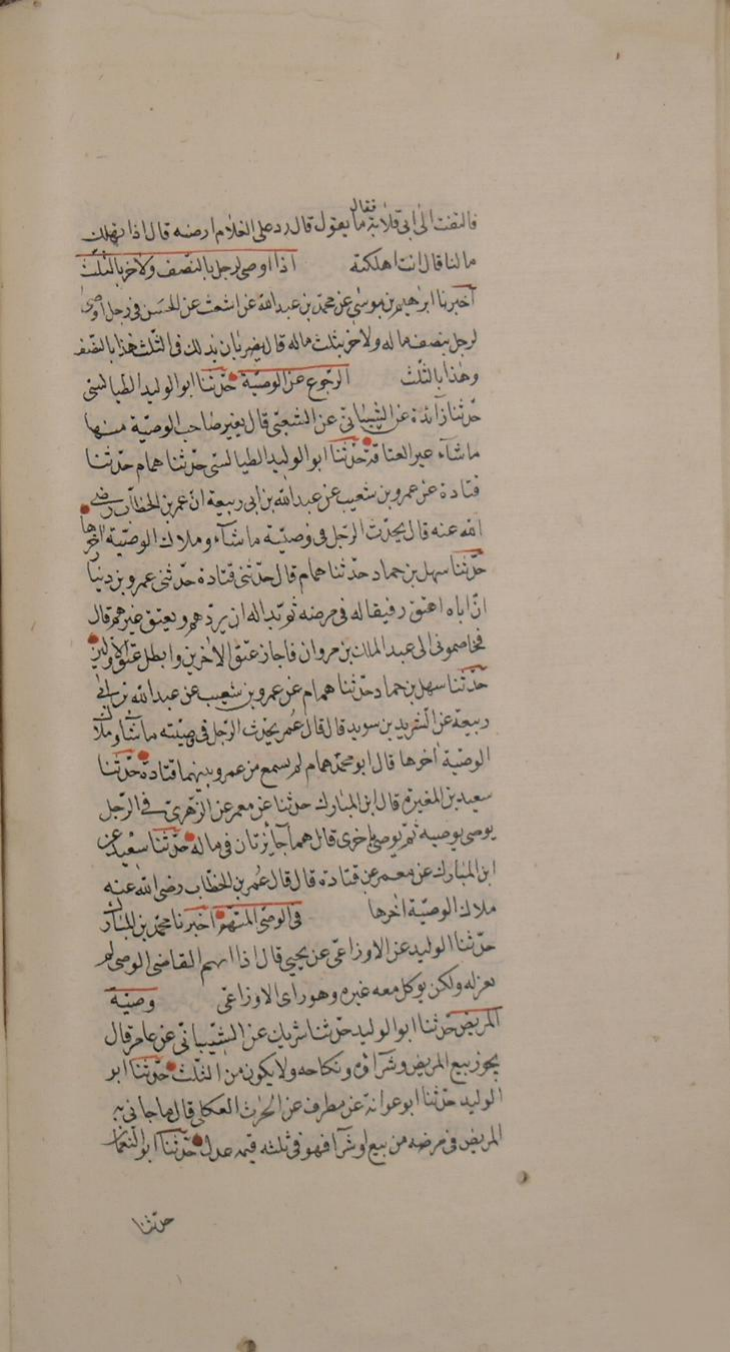 فالتفت الى ابى قلابة فقال ما يقول قال رد على الغلام ارضه قال اذا يهلك
مالنا قال انت اهلكته اذا اوصى لرجل بالنصف ولآخر بالثلث
اخبرنا ابرهيم بن موسى عن محمد بن عبد الله عن اشعث عن الحسن فى رجل اوصى
لرجل بنصف ماله ولآخر بثلث ماله قال يضربان بذلك فى الثلث هذا بالنصف
وهذا بالثلث الرجوع عن الوصية حدثنا ابو الوليد الطيالسى
حدثنا زآئدة عن الشيبانى عن الشعبى قال يغير صاحب الوصية منها
ماشآء غير العتاقة حدثنا ابو الوليد الطيالسى حدثنا همام حدثنا
قتادة عن عمرو بن شعيب عن عبد الله بن ابى ربيعة ان عمر بن الخطاب رضى
الله عنه قال يحدث الرجل فى وصيته ماشآء وملاك الوصية اخرها
حدثنا سهل بن حماد حدثنا همام قال حدثنى قتادة حدثنى عمرو بن دينار
ان اباه اعتق رقيقا له فى مرضه ثم بدا له ان يردهم ويعتق غيرهم قال
فخاصمونى الى عبد الملك بن مروان فاجاز عتق الآخرين وابطل عتق الاولين
حدثنا سهل بن حماد حدثنا همام عن عمرو بن شعيب عن عبد الله بن ابى
ربيعة عن الشريد بن سويد قال قال عمر يحدث الرجل فى وصيته ماشآء وملاك
الوصية اخرها قال ابو محمد همام لم يسمع من عمرو بينهما قتادة حدثنا
سعيد بن المغيرة قال ابن المبارك حدثنا عن معمر عن الزهرى فى الرجل
يوصى بوصية ثم يوصى باخرى قال هما جآئزتان فى ماله حدثنا سعيد عن
ابن المبارك عن معمر عن قتادة قال قال عمر بن الخطاب رضى الله عنه
ملاك الوصية اخرها فى الوصى المتهم اخبرنا محمد بن المبارك
حدثنا الوليد عن الاوزاعى عن يحيى قال اذا اتهم القاضى الوصى لم
يعزله ولكن يوكل معه غيره وهو راى الاوزاعى وصية
المريض حدثنا ابو الوليد حدثنا شريك عن الشيبانى عن عامر قال
يجوز بيع المريض وشرآؤه ونكاحه ولا يكون من الثلث حدثنا ابو
الوليد حدثنا ابو عوانة عن مطرف عن الحرث العكلى قال ما حابى به
المريض فى مرضه من بيع او شرآ فهو فى ثلثه قيمة عدل حدثنا ابو النعمان
حدثنا